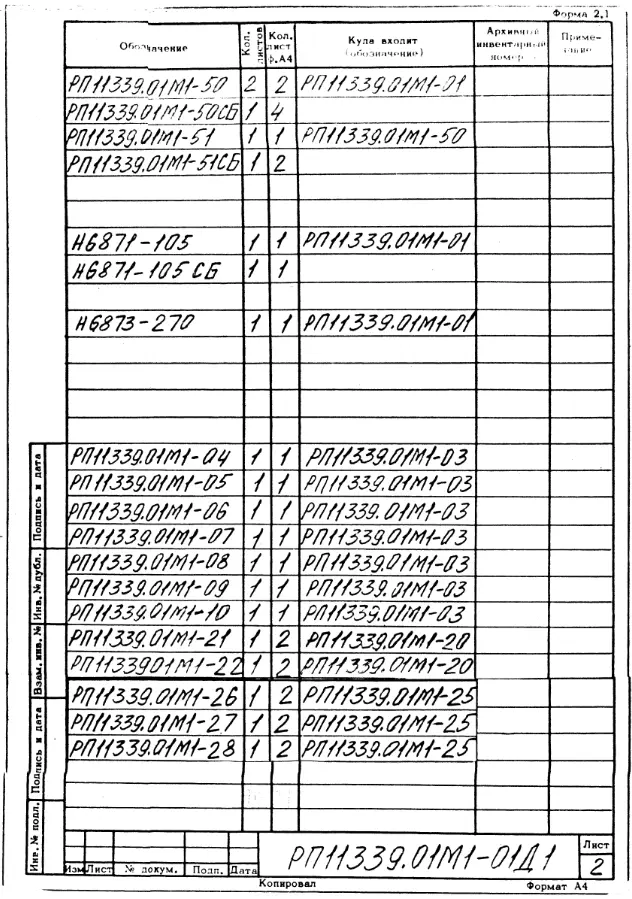 Форма 2.1
Обозначение Кол. листов Кол. лист ф.А4 Куда входит (обозначение) Архивный инвентарный номер Приме- чание
РП11339.01М1-50 2 2 РП11339.01М1-01
РП11339.01М1-50СБ 1 4
РП11339.01М1-51 1 1 РП11339.01М1-50
РП11339.01М1-51СБ 1 2
Н6871-105 1 1 РП11339.01М1-01
Н6871-105 СБ 1 1
Н6873-270 1 1 РП11339.01М1-01
РП11339.01М1-04 1 1 РП11339.01М1-03
РП11339.01М1-05 1 1 РП11339.01М1-03
РП11339.01М1-06 1 1 РП11339.01М1-03
РП11339.01М1-07 1 1 РП11339.01М1-03
РП11339.01М1-08 1 1 РП11339.01М1-03
РП11339.01М1-09 1 1 РП11339.01М1-03
РП11339.01М1-10 1 1 РП11339.01М1-03
РП11339.01М1-21 1 2 РП11339.01М1-20
РП1133901М1-22 1 2 РП11339.01М1-20
РП11339.01М1-26 1 2 РП11339.01М1-25
РП11339.01М1-27 1 2 РП11339.01М1-25
РП11339.01М1-28 1 2 РП11339.01М1-25
Подпись и дата
Инв. № дубл.
Взам. инв. №
Подпись и дата
Инв. № подл.
РП11339.01М1-01Д1
Лист
2
Изм Лист № докум. Подп. Дата
Копировал Формат А4